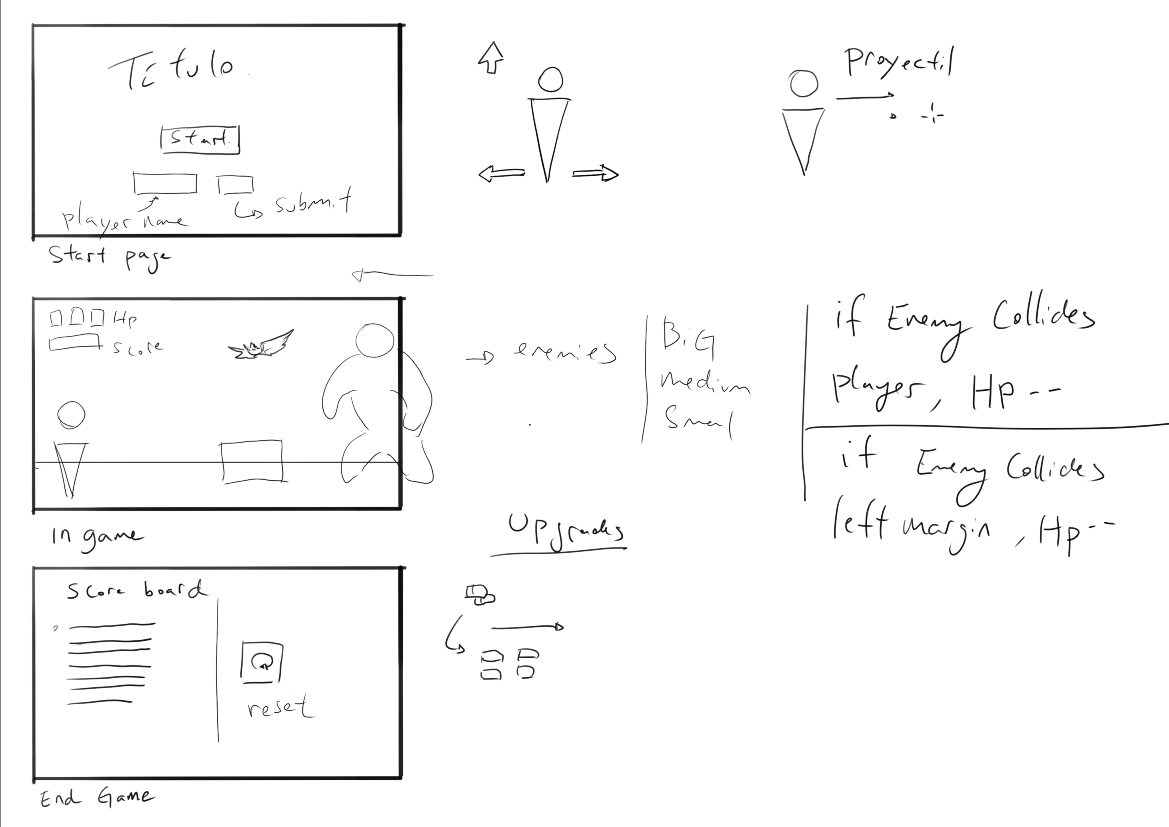 Título
Start
player name
submit
Start page
Proyectil
Hp
Score
enemies
BiG
medium
Small
if Enemy Collides
player, Hp --
if Enemy Collides
left margin, Hp--
In game
Upgrades
Score board
reset
End Game